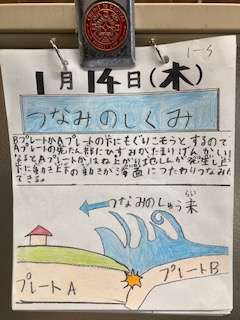 1-5
1月14日(木)
つなみのしくみ
BプレートがAプレートの下にもぐりこもうとするので
Aプレートの先たん部にひずみがたまりげんかいに
なるとAプレートがはね上がりじしんが発生し
下に動き上下の動きが海面につたわりつなみ
できる。
つなみのしゅう来
らい
プレートA
プレートB